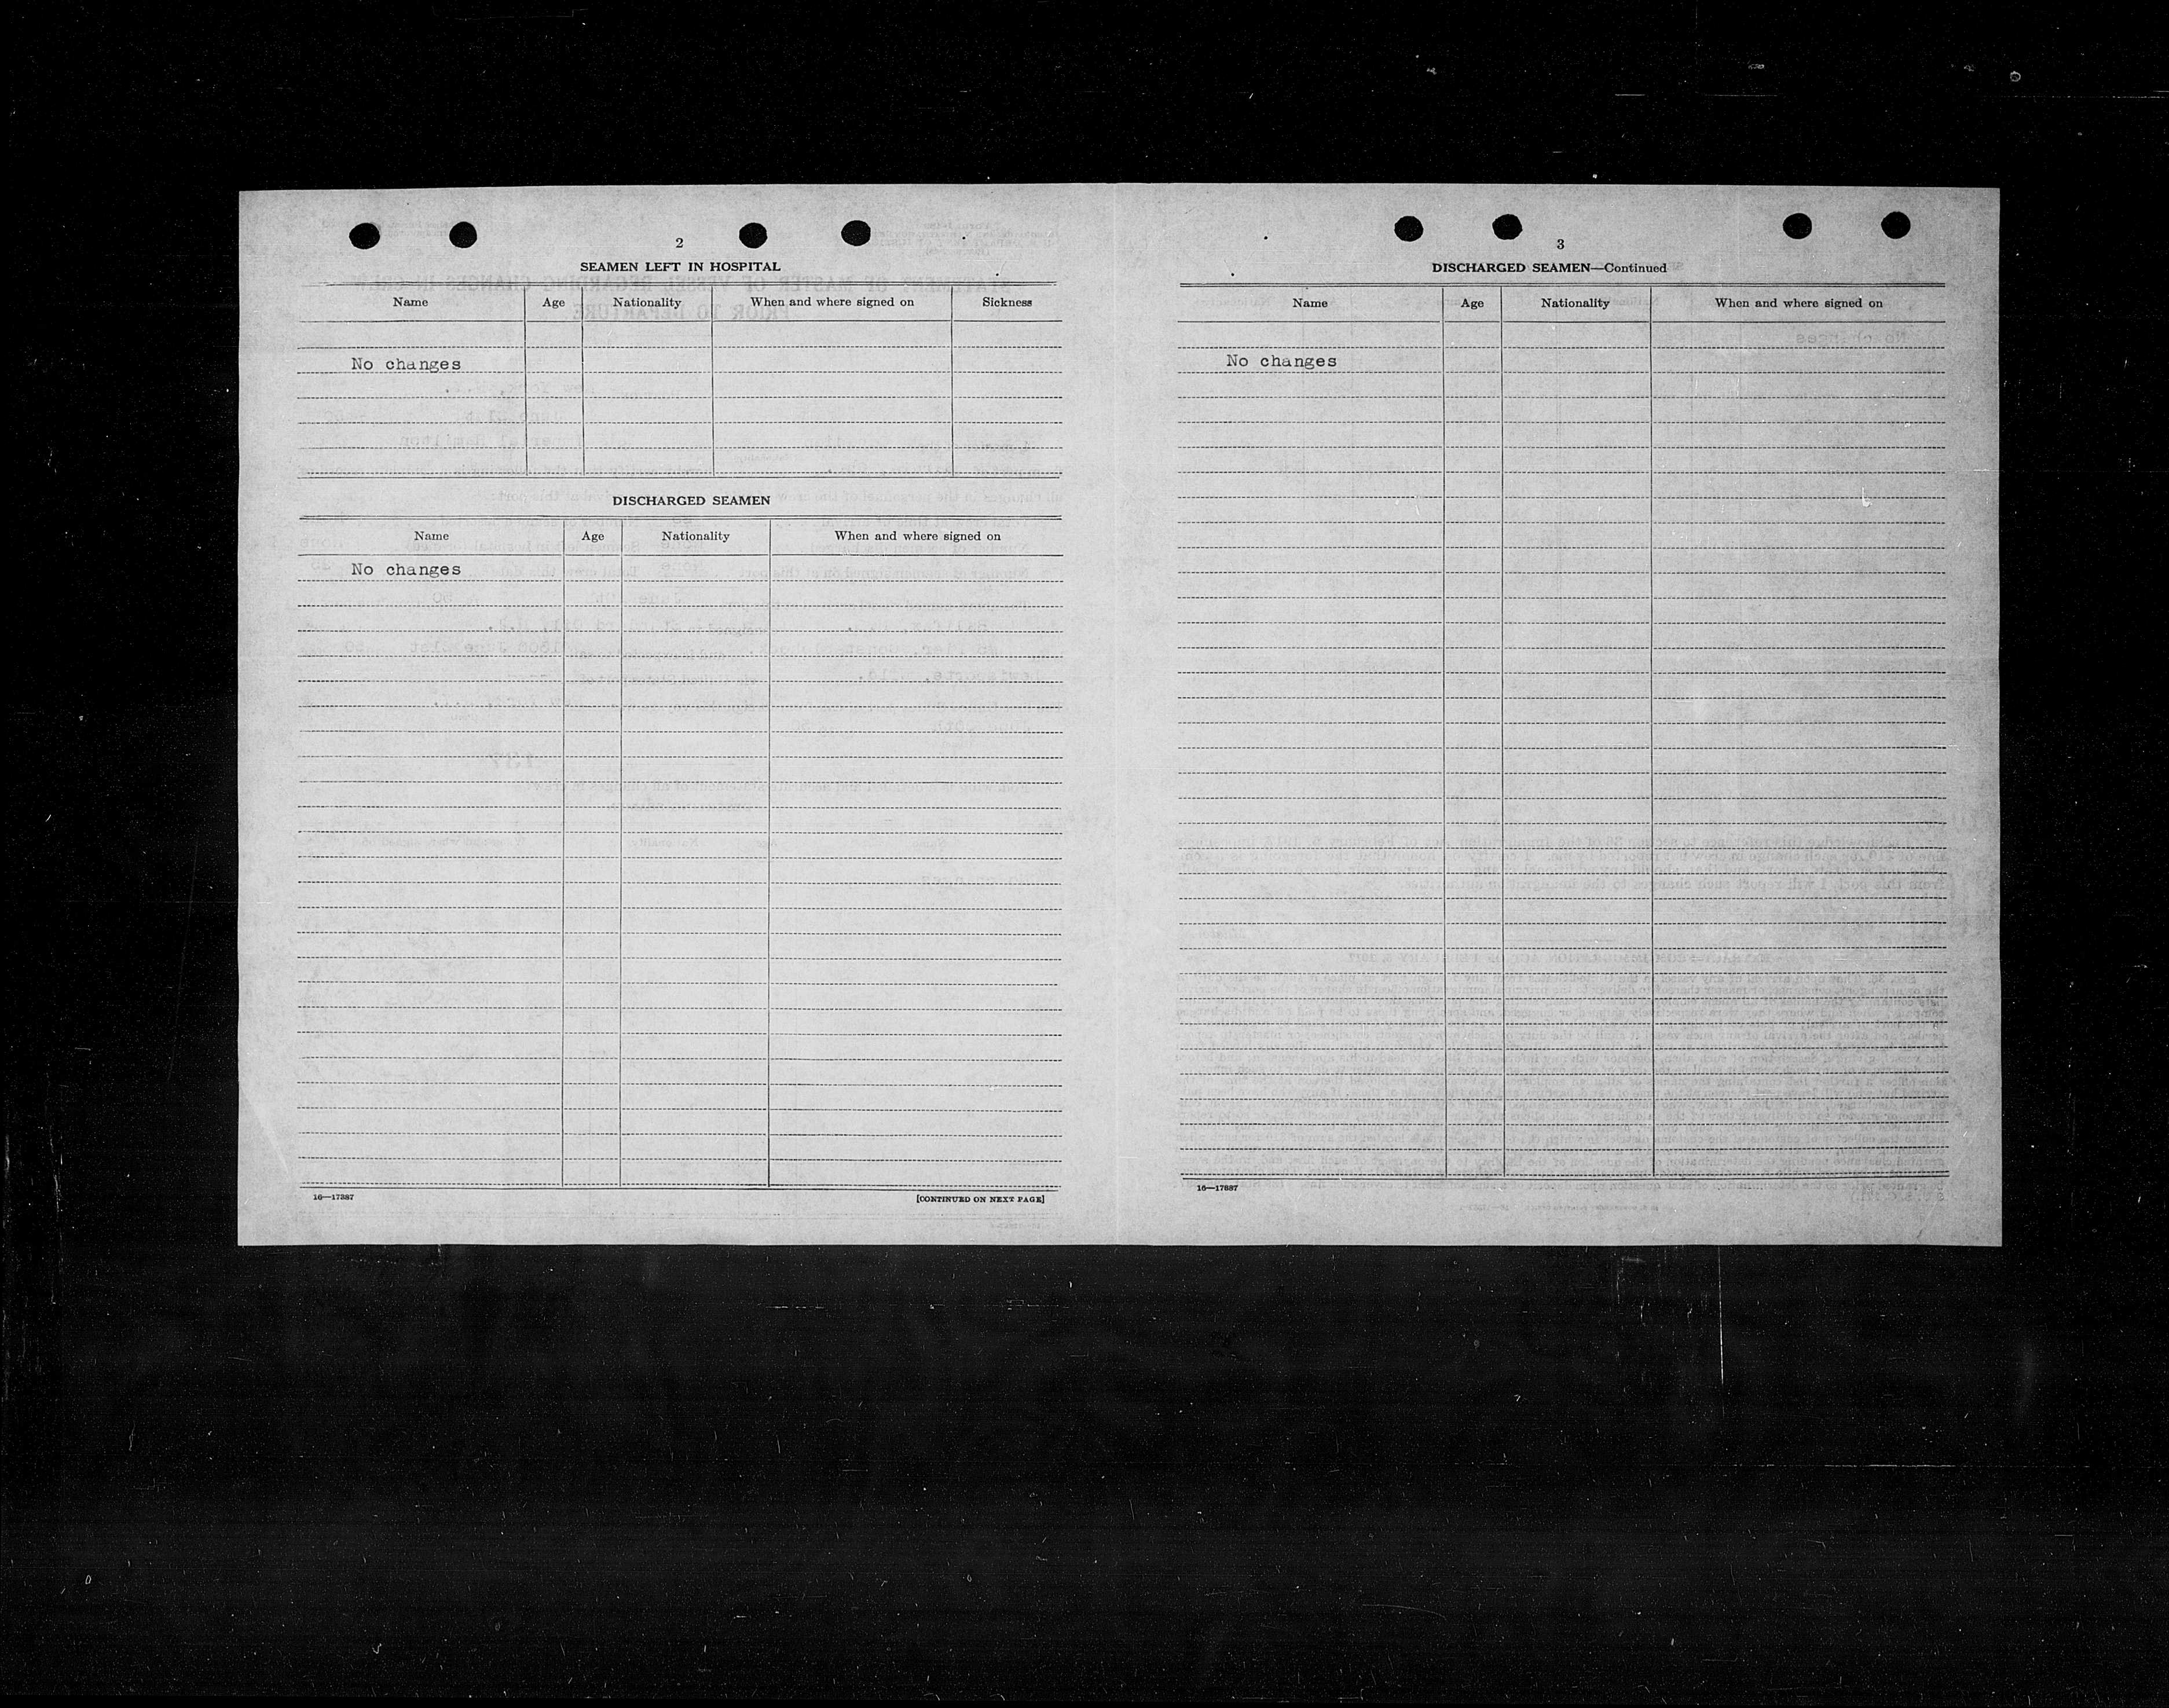 2
SEAMEN LEFT IN HOSPITAL
Name Age Nationality When and where signed on Sickness
No changes
DISCHARGED SEAMEN
Name Age Nationality When and where signed on
No changes
16—17387 [CONTINUED ON NEXT PAGE]
3
DISCHARGED SEAMEN—Continued
Name Age Nationality When and where signed on
No changes
16—17887